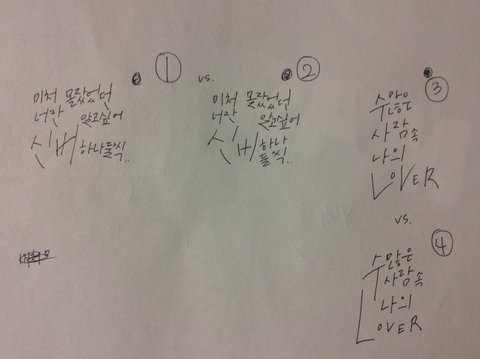 ① vs. ②
미처 몰랐었던
너란 알고싶어
신비 하나둘씩..
미처 몰랐었던
너란 알고싶어
신비 하나
둘씩..
③
수많은
사람속
나의
LOVER
vs.
④
수많은
사람속
나의
LOVER